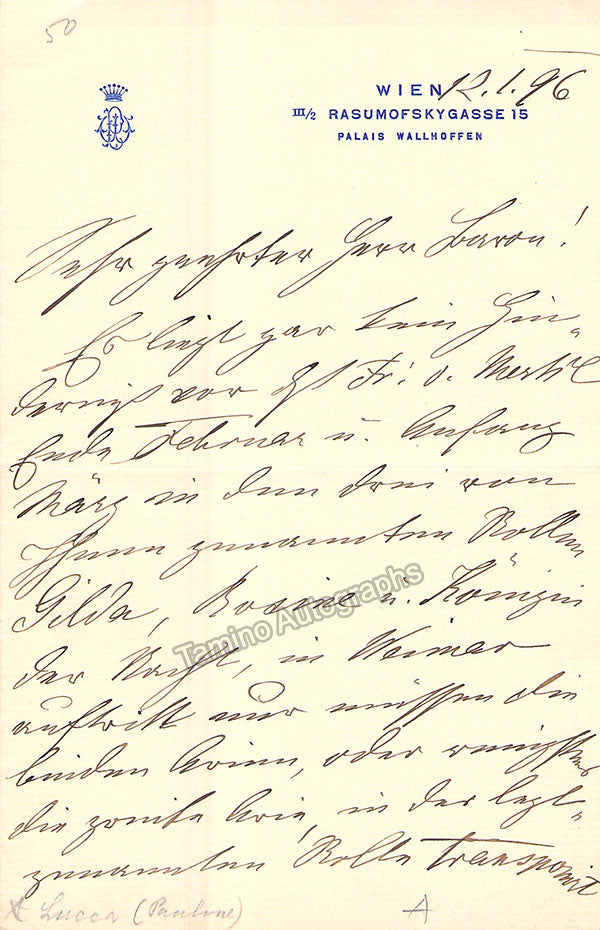 50
WIEN 12.1.96
III/2 RASUMOFSKYGASSE 15
PALAIS WALLHOFFEN
Sehr geehrter Herr Baron!
Es liegt gar kein Hin-
derniß vor daß Fr: v.
Ende Februar u. Anfang
März in den drei von
Ihnen genannten Rollen
Gilda, Rosine u. Königin
der Nacht, in Weimar
auftritt nur müssen die
beiden Arien, oder wenigstens
die zweite Arie, in der letzt-
genannten Rolle transponirt
Tamino Autographs
Lucca (Pauline)
A